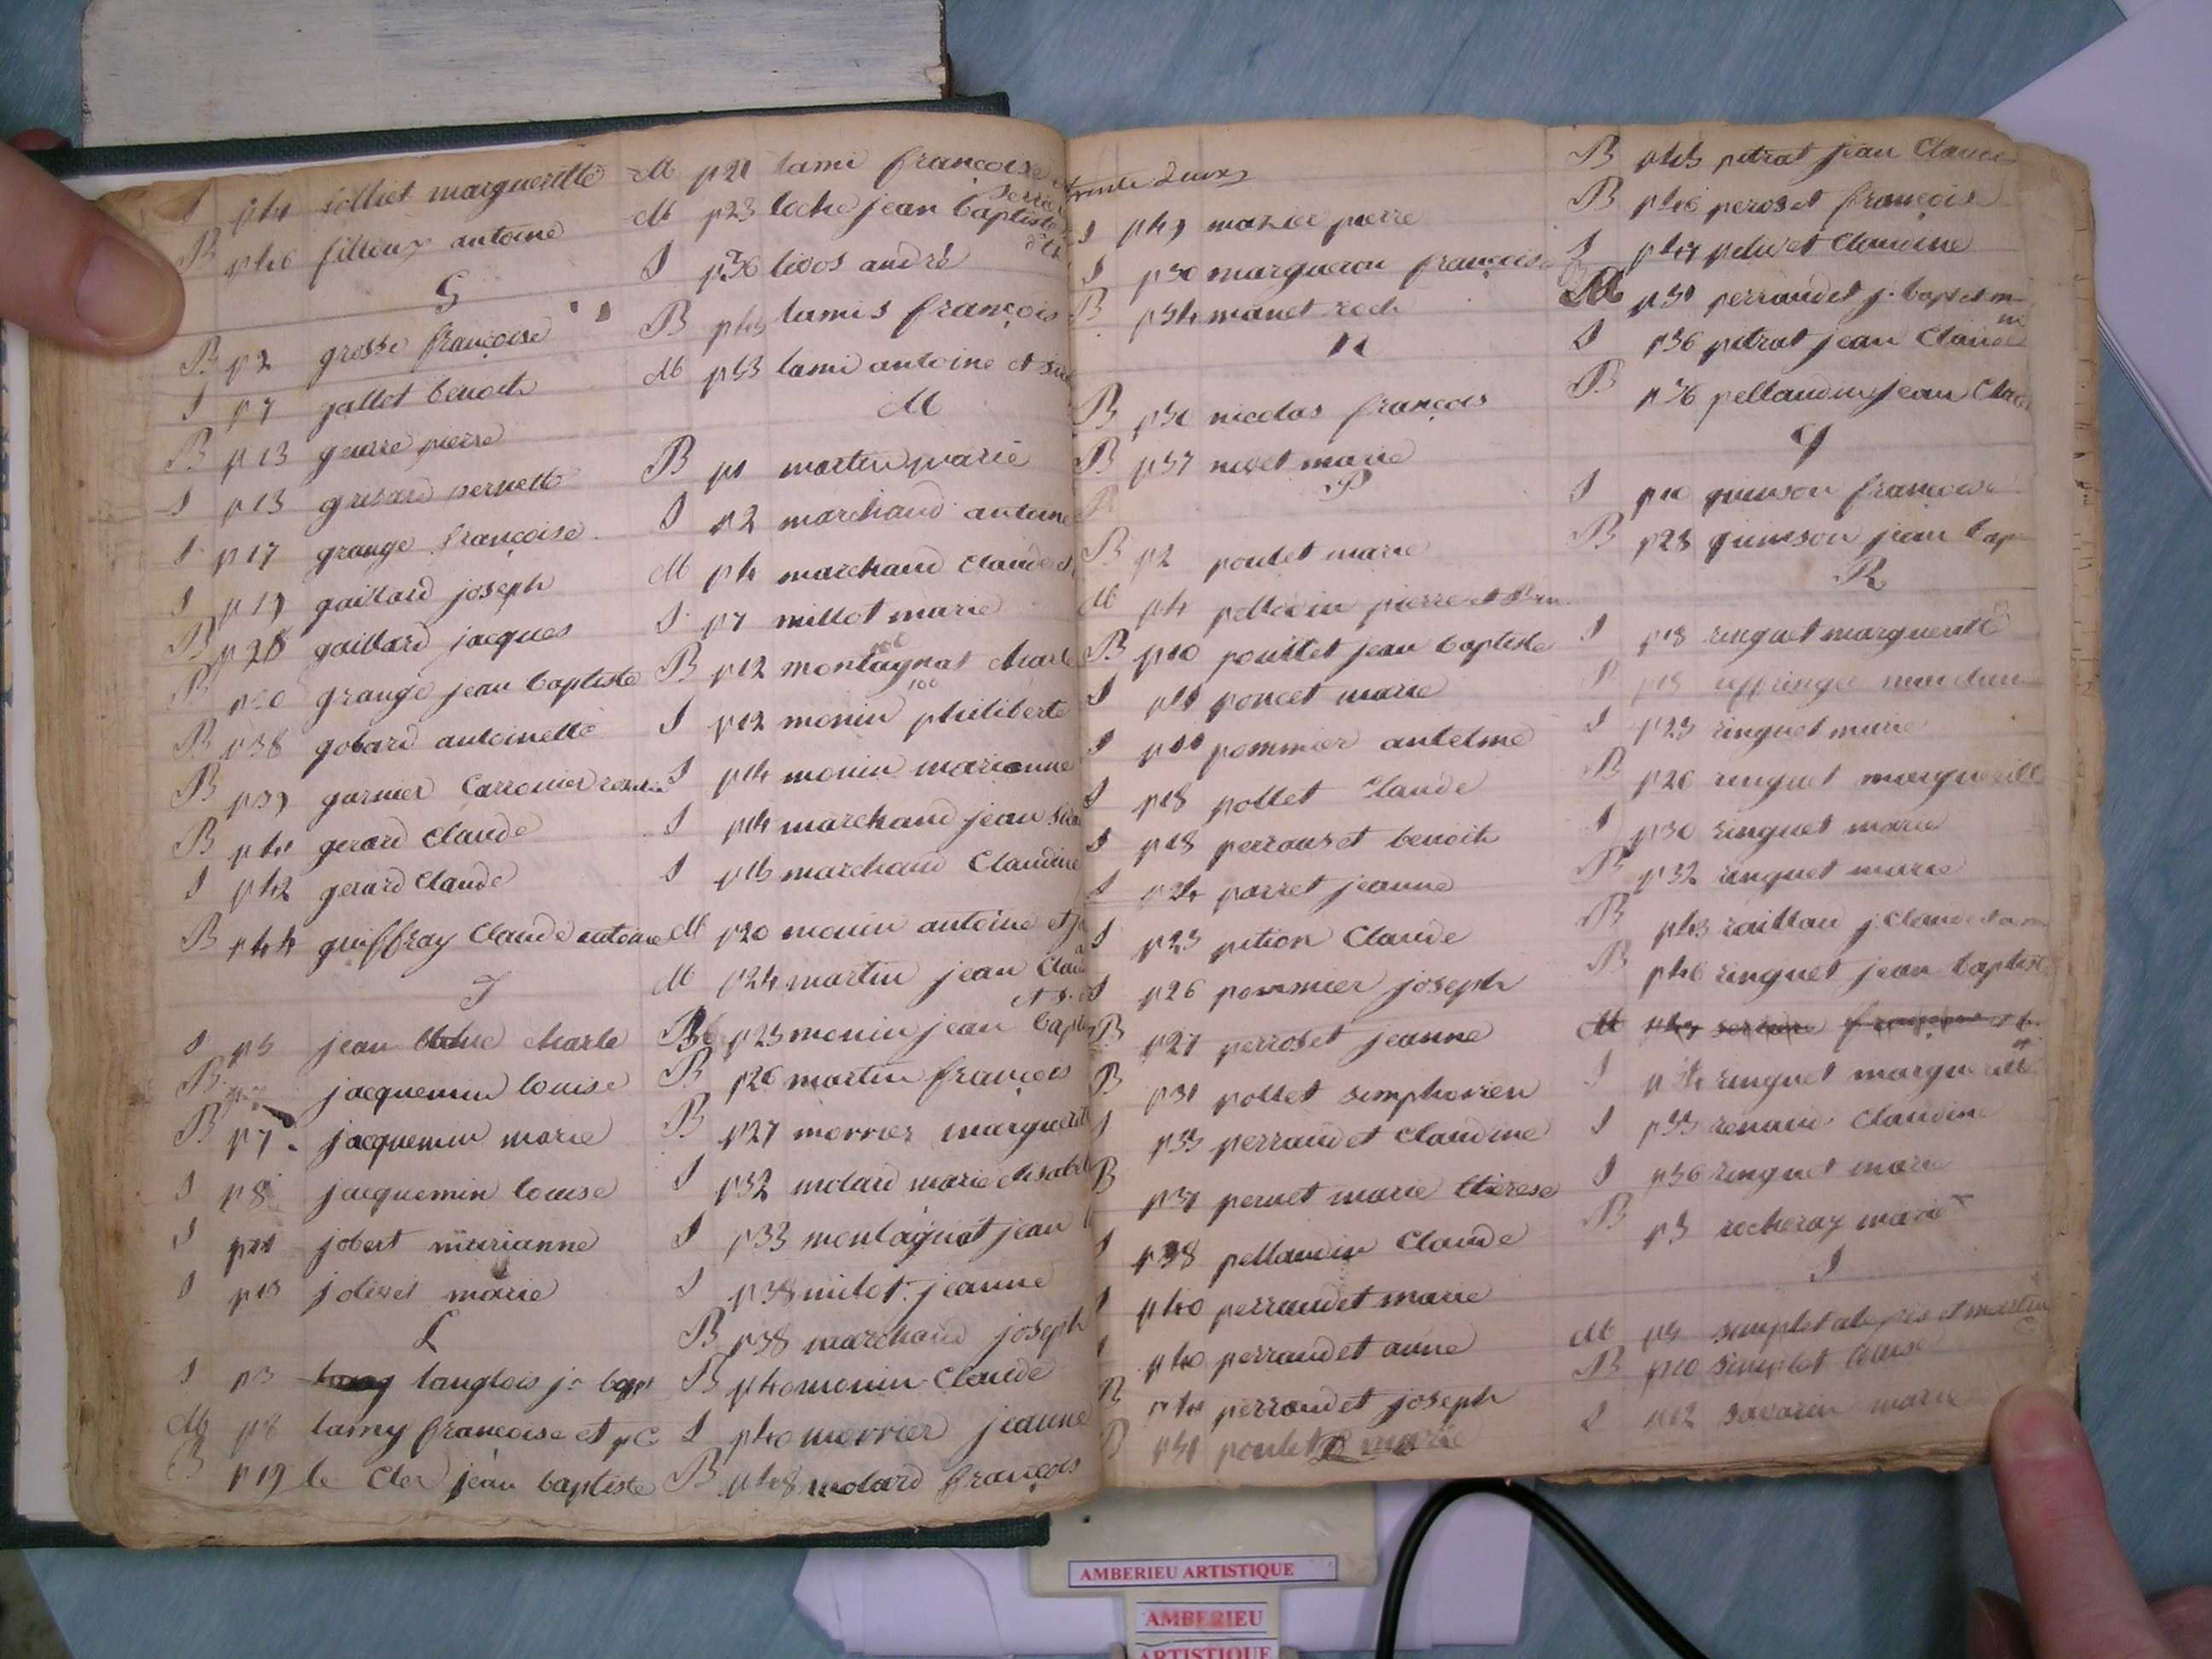 S p41 folliet margueritte
B p46 filloux antoine
G
B p2 grosse françoise
S p7 gallet benoith
B p13 guerre pierre
S p13 grisard pernette
S p17 grange françoise
S p19 gaillard joseph
B p28 gaillard jacques
B grange jean baptiste
B p38 gobard antoinette
B p39 garnier
B p41 gerard Claude
S p42 gerard Claude
B p44 guiffray Claude antoine
J
S p5 jean charle
B jacquemin louise
B p7 jacquemin marie
S p8 jacquemin louise
S p11 jobert marianne
S p13 jolivet marie
L
S p3 langlois j. bapt
M p8 lamy françoise et
B p19 le Cler jean baptiste
M p21 lami françoise
M p23 loche jean baptiste
S p36 livos andré
B p45 lamis françois
M p53 lami antoine et
M
B p1 martin marie
S p2 marchand antoine
M p4 marchand Claude
S p7 millot marie
B p12 montagnat charle
S p12 monin philiberte
S p14 monin marianne
S p14 marchand jean
S p16 marchand Claudine
M p20 monin antoine et
M p24 martin jean Clau
et s.
B p25 monin jean bapti
B p26 martin françois
B p27 morrier marguerit
S p32 molard marie elisabet
S p33 montagnat jean
S p38 milot jeanne
B p38 marchand joseph
B p40 monin Claude
S p40 morrier jeanne
B p48 molard françois
trente deux
S p49 mazier pierre
S p50 margueron françois
B p54 manet roch
N
B p30 nicolas françois
B p37 nivet marie
P
B p2 poulet marie
M p4 pellodin pierre et
B p10 pouillet jean baptiste
S p11 poncet marie
S p11 pommier antelme
S p18 pollet Claude
S p18 perrouset benoith
S p24 parret jeanne
S p25 pition Claude
S p26 pommier joseph
B p27 perroset jeanne
B p31 pollet simphorien
S p35 perraudet Claudine
B p37 pernet marie therese
S p38 pellaudin Claude
S p40 perraudet marie
S p40 perraudet anne
B p41 perraudet joseph
B p51 poulet marie
B p45 pitrat jean Claude
B p46 peroset françois
S p47 pelivet Claudine
M p51 perraudet j. baptist
S p56 pitrat jean Claude
B p56 pellaudin jean Clau
Q
S p10 quinson françoise
B p28 quinson jean bap
R
S p18 ringuet marguerite
S p23 ringuet marie
B p26 ringuet marguerite
S p30 ringuet marie
B p32 ringuet marie
B p43 raillau j. Claude
B p46 ringuet jean baptist
S ringuet marguerite
S p55 renaud Claudine
S p56 ringuet marie
B p5 rocheray marie
S
M p5 simplet et martin
B p10 simplet louise
S p12 savarin marie
AMBERIEU ARTISTIQUE
AMBERIEU
ARTISTIQUE